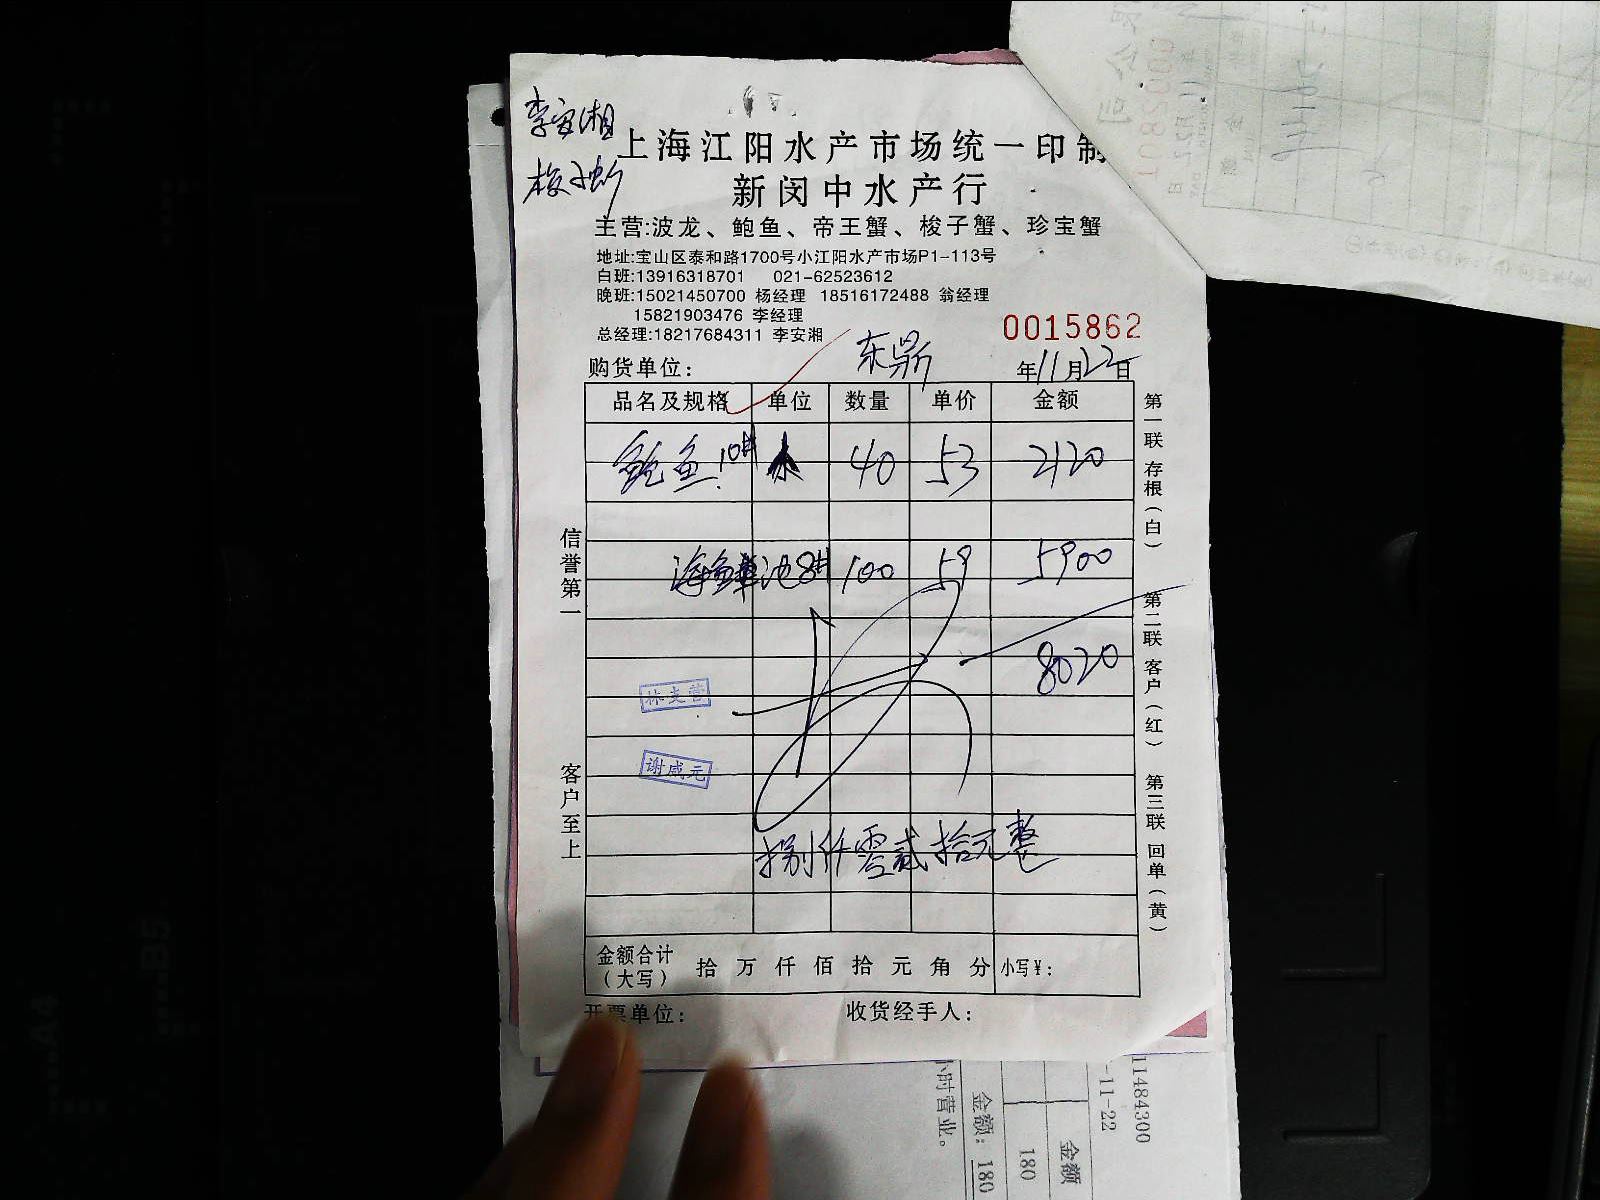 李安湘
梭子蟹
上海江阳水产市场统一印制
新闵中水产行
主营:波龙、鲍鱼、帝王蟹、梭子蟹、珍宝蟹
地址:宝山区泰和路1700号小江阳水产市场P1-113号
白班:13916318701 021-62523612
晚班:15021450700 杨经理 18516172488 翁经理
15821903476 李经理
总经理:18217684311 李安湘
0015862
购货单位: 东鼎 年11月22日
品名及规格 单位 数量 单价 金额
鲍鱼10# 水 40 53 2120
海鲜池8# 100 59 5900
8020
林支营
谢咸元
捌仟零贰拾元整
金额合计
(大写) 拾 万 仟 佰 拾 元 角 分 小写¥:
开票单位: 收货经手人:
信誉第一
客户至上
第一联 存根(白)
第二联 客户(红)
第三联 回单(黄)
11484300
-11-22
金额
180
金额: 180
小时营业。
A4
B5